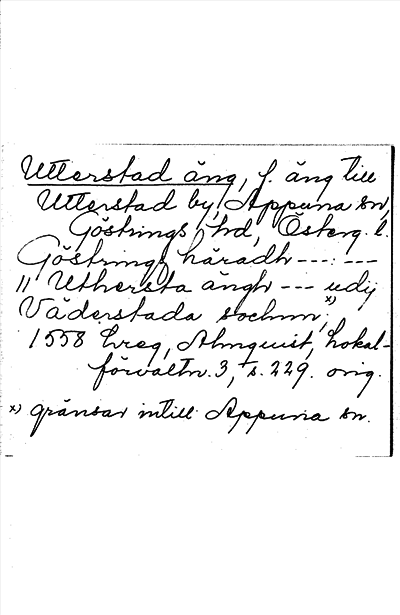 Utterstad äng, f. äng till
Utterstad by, Appuna sn,
Göstrings hd, Österg. l.
Göstrings häradh ---:---
" Uthersta ängh --- udij
Väderstada sochnn; x)
1558 Ereg, Almquist, Lokal-
förvaltn. 3, s. 229. orig.
x) gränsar intill Appuna sn.